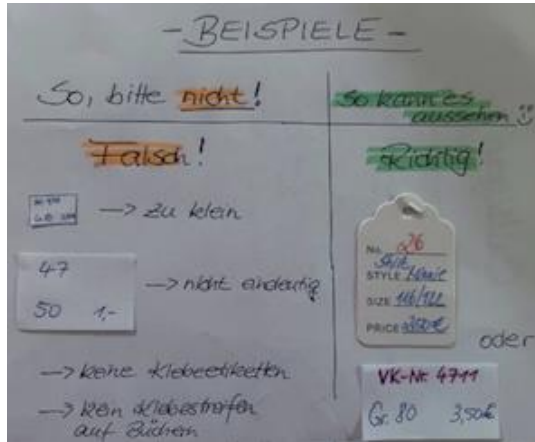 - BEISPIELE -
So, bitte nicht!
Falsch!
→ zu klein
47
50 1,-
→ nicht eindeutig
→ keine Klebeetiketten
→ kein Klebestreifen
auf Büchern
So kann es
aussehen
Richtig!
No. 26
STYLE
SIZE 116/122
PRICE 3,50€
oder
VK-Nr. 4711
Gr. 80 3,50€